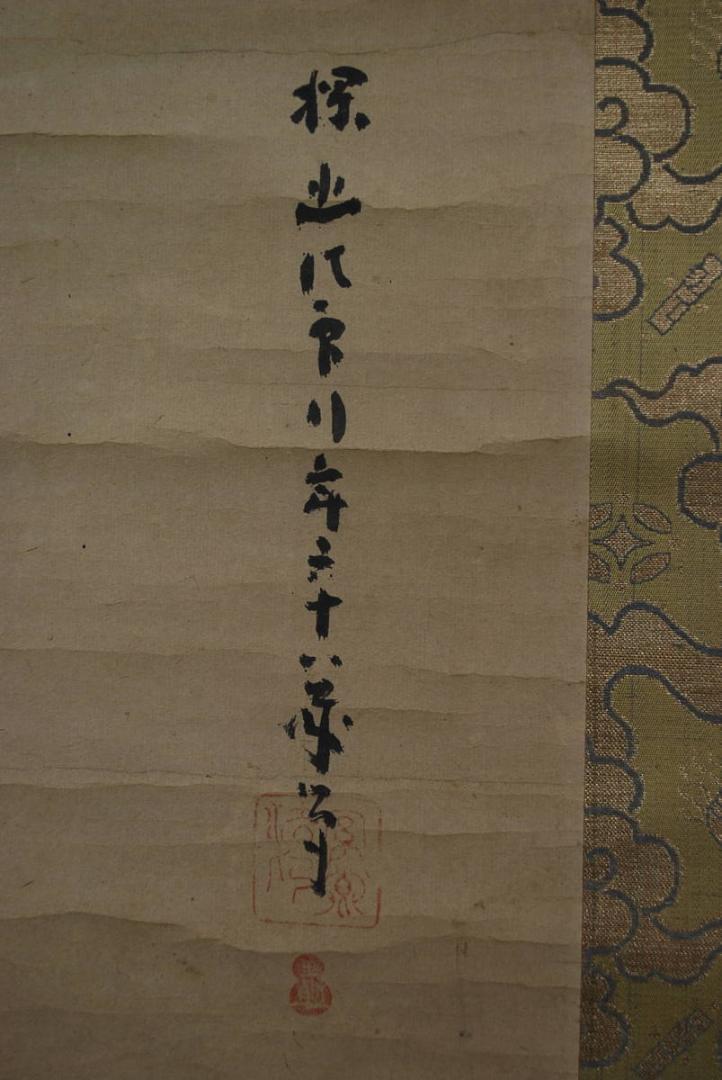 探幽法印行年六十八歳筆